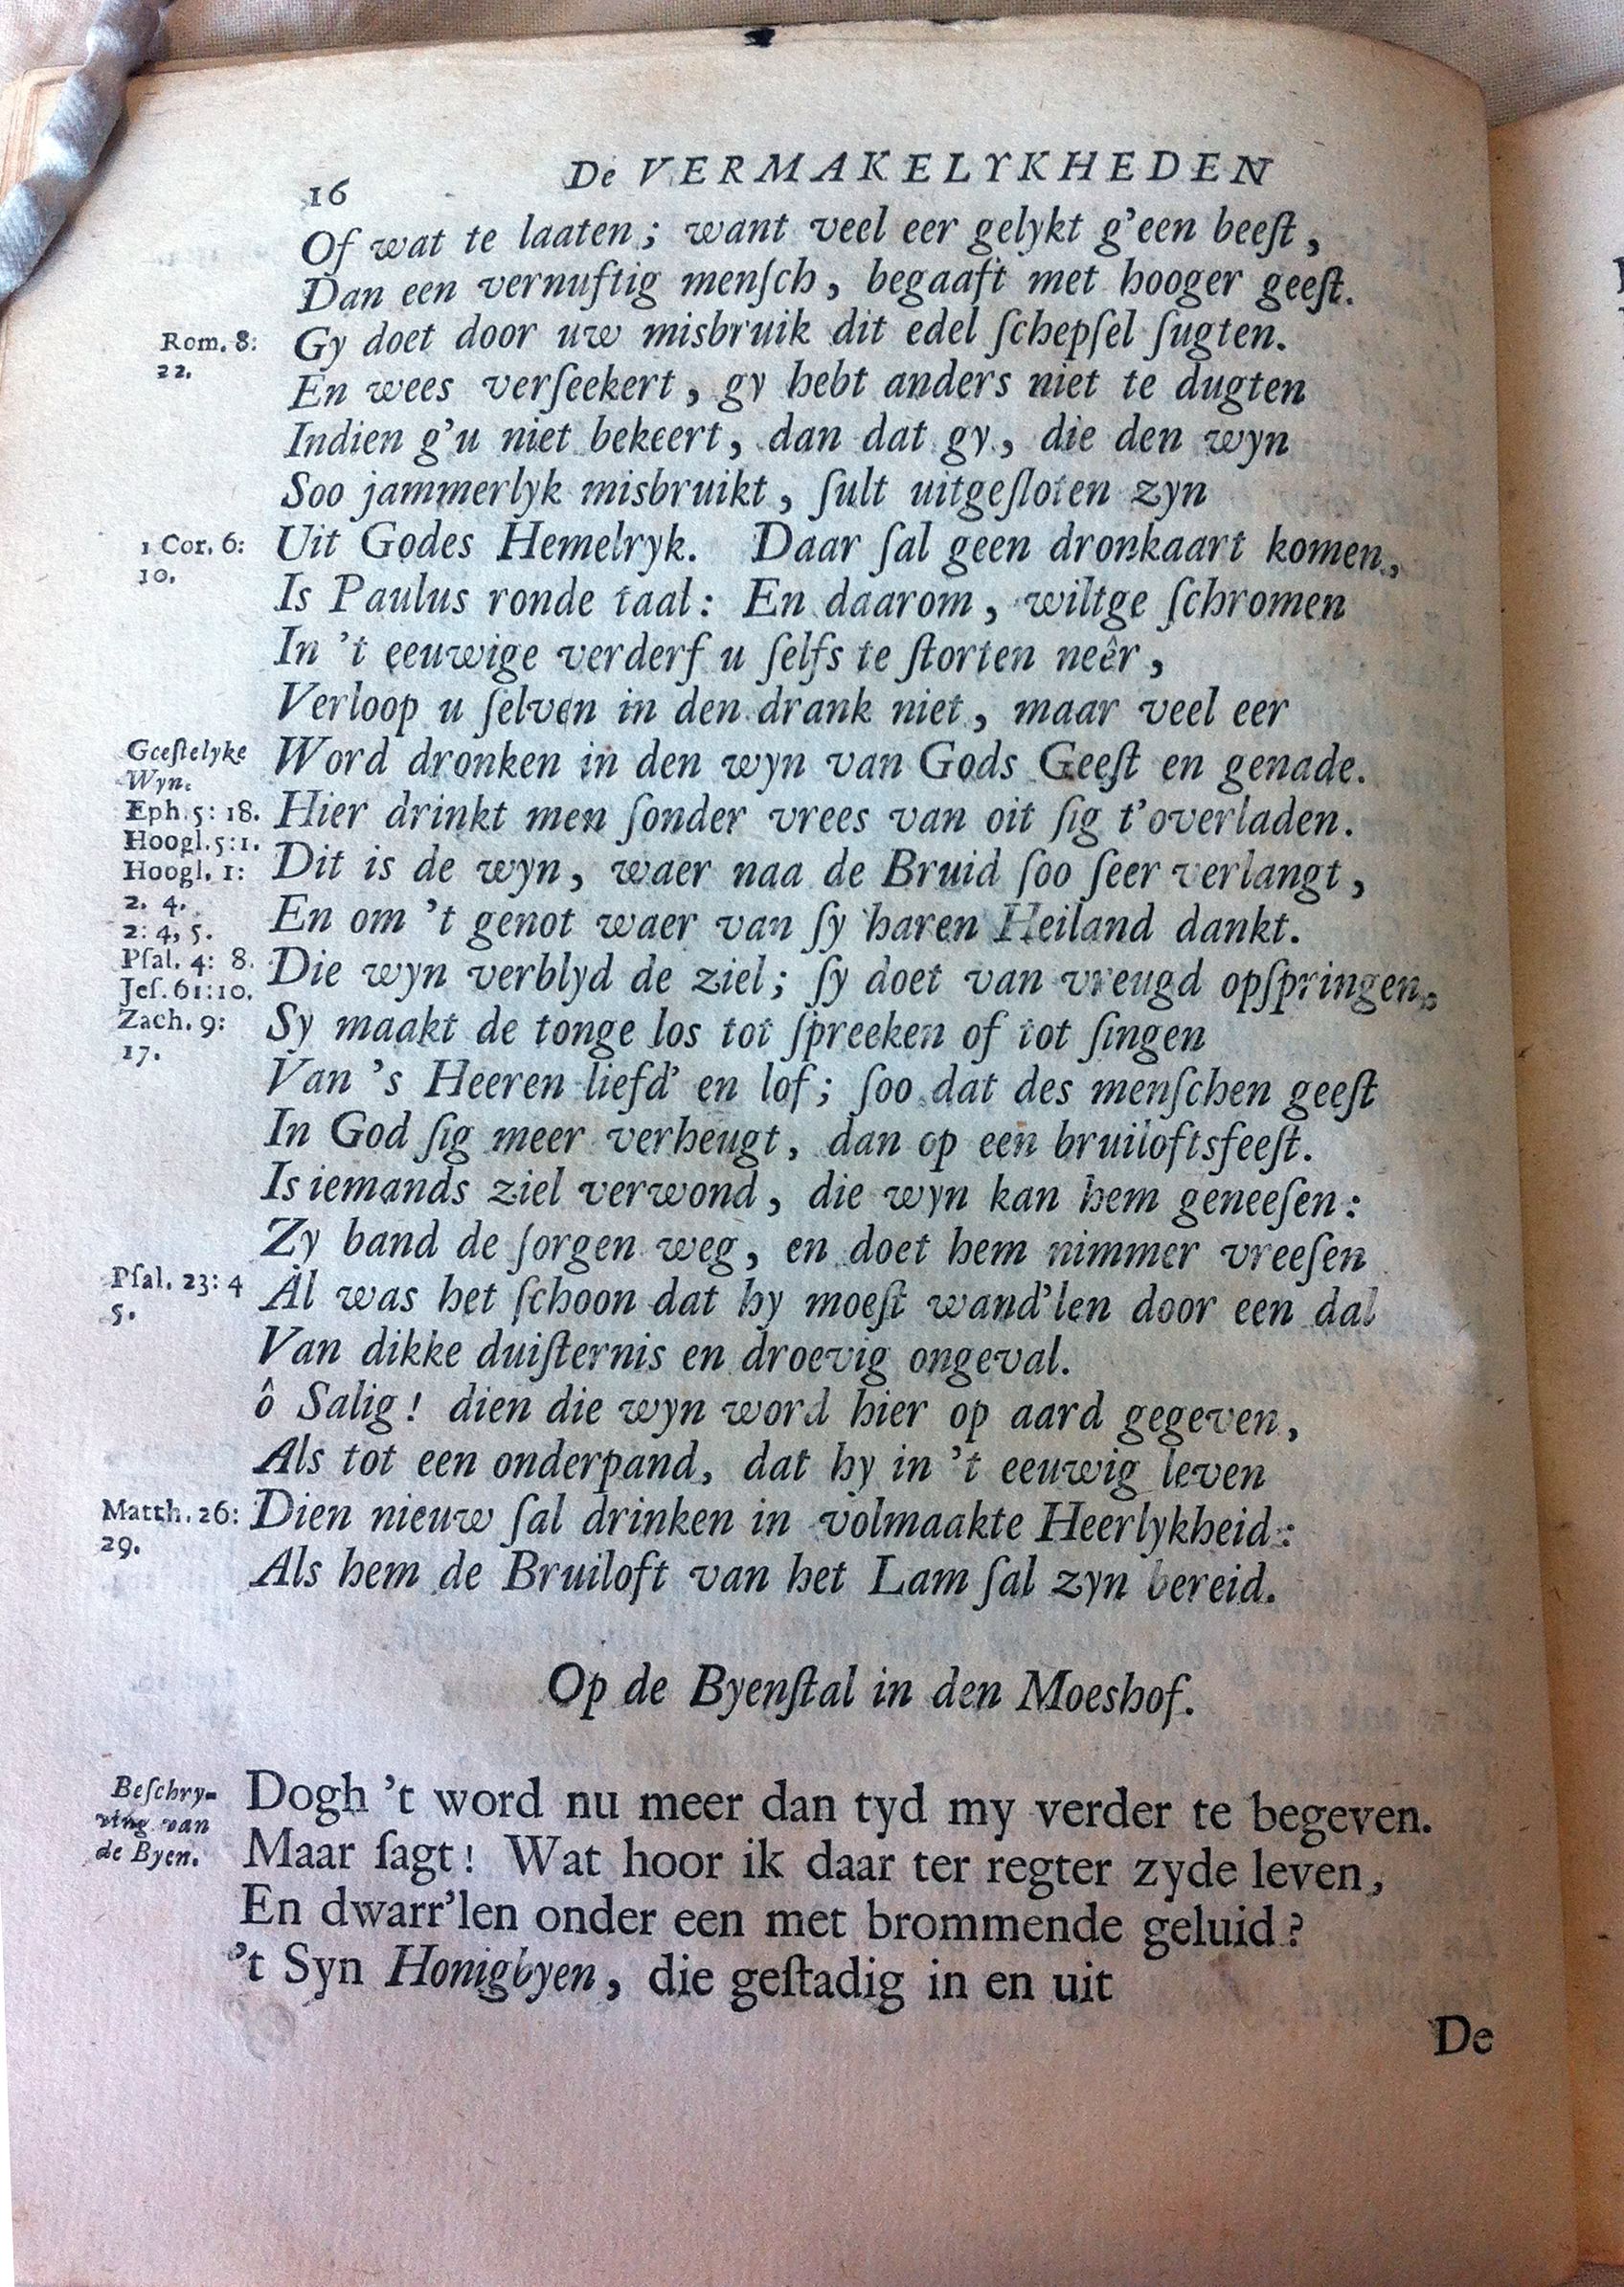 16 De VERMAKELYKHEDEN
Of wat te laaten; want veel eer gelykt g'een beeſt,
Dan een vernuftig menſch, begaaft met hooger geeſt.
Rom. 8:
22.
Gy doet door uw misbruik dit edel ſchepſel ſugten.
En wees verſeekert, gy hebt anders niet te dugten
Indien g'u niet bekeert, dan dat gy, die den wyn
Soo jammerlyk misbruikt, ſult uitgeſloten zyn
1 Cor. 6:
10.
Uit Godes Hemelryk. Daar ſal geen dronkaart komen,
Is Paulus ronde taal: En daarom, wiltge ſchromen
In 't eeuwige verderf u ſelfs te ſtorten neêr,
Verloop u ſelven in den drank niet, maar veel eer
Geeſtelyke
Wyn.
Eph. 5: 18.
Hoogl. 5:1.
Hoogl. 1:
2. 4.
2: 4, 5.
Pſal. 4: 8.
Jeſ. 61:10.
Zach. 9:
17.
Word dronken in den wyn van Gods Geeſt en genade.
Hier drinkt men ſonder vrees van oit ſig t'overladen.
Dit is de wyn, waer naa de Bruid ſoo ſeer verlangt,
En om 't genot waer van ſy haren Heiland dankt.
Die wyn verblyd de ziel; ſy doet van vreugd opſpringen,
Sy maakt de tonge los tot ſpreeken of tot ſingen
Van 's Heeren liefd' en lof; ſoo dat des menſchen geeſt
In God ſig meer verheugt, dan op een bruiloftsfeeſt.
Is iemands ziel verwond, die wyn kan hem geneeſen:
Zy band de ſorgen weg, en doet hem nimmer vreeſen
Pſal. 23: 4
5.
Al was het ſchoon dat hy moeſt wand'len door een dal
Van dikke duiſternis en droevig ongeval.
ô Salig! dien die wyn word hier op aard gegeven,
Als tot een onderpand, dat hy in 't eeuwig leven
Matth. 26:
29.
Dien nieuw ſal drinken in volmaakte Heerlykheid:
Als hem de Bruiloft van het Lam ſal zyn bereid.
Op de Byenſtal in den Moeshof.
Beſchry-
ving van
de Byen.
Dogh 't word nu meer dan tyd my verder te begeven.
Maar ſagt! Wat hoor ik daar ter regter zyde leven,
En dwarr'len onder een met brommende geluid?
't Syn Honigbyen, die geſtadig in en uit
De